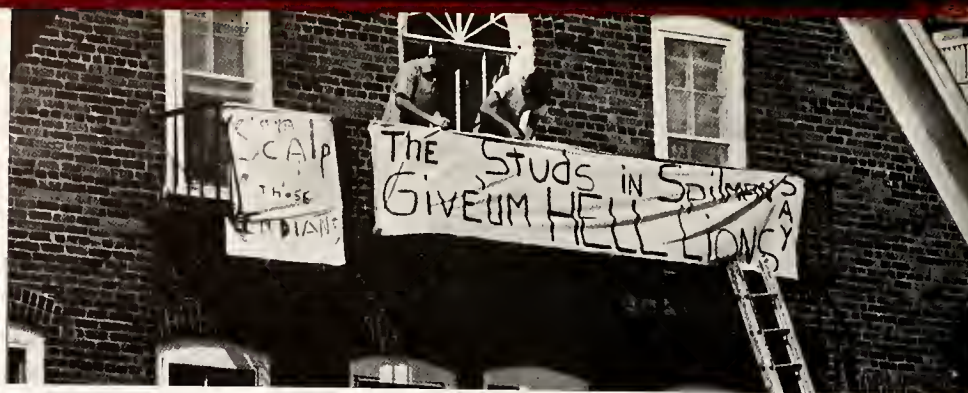 SCAlp
Those
INDIANS
The Studs in Spilman SAY
GiVEUM HELL LIONS